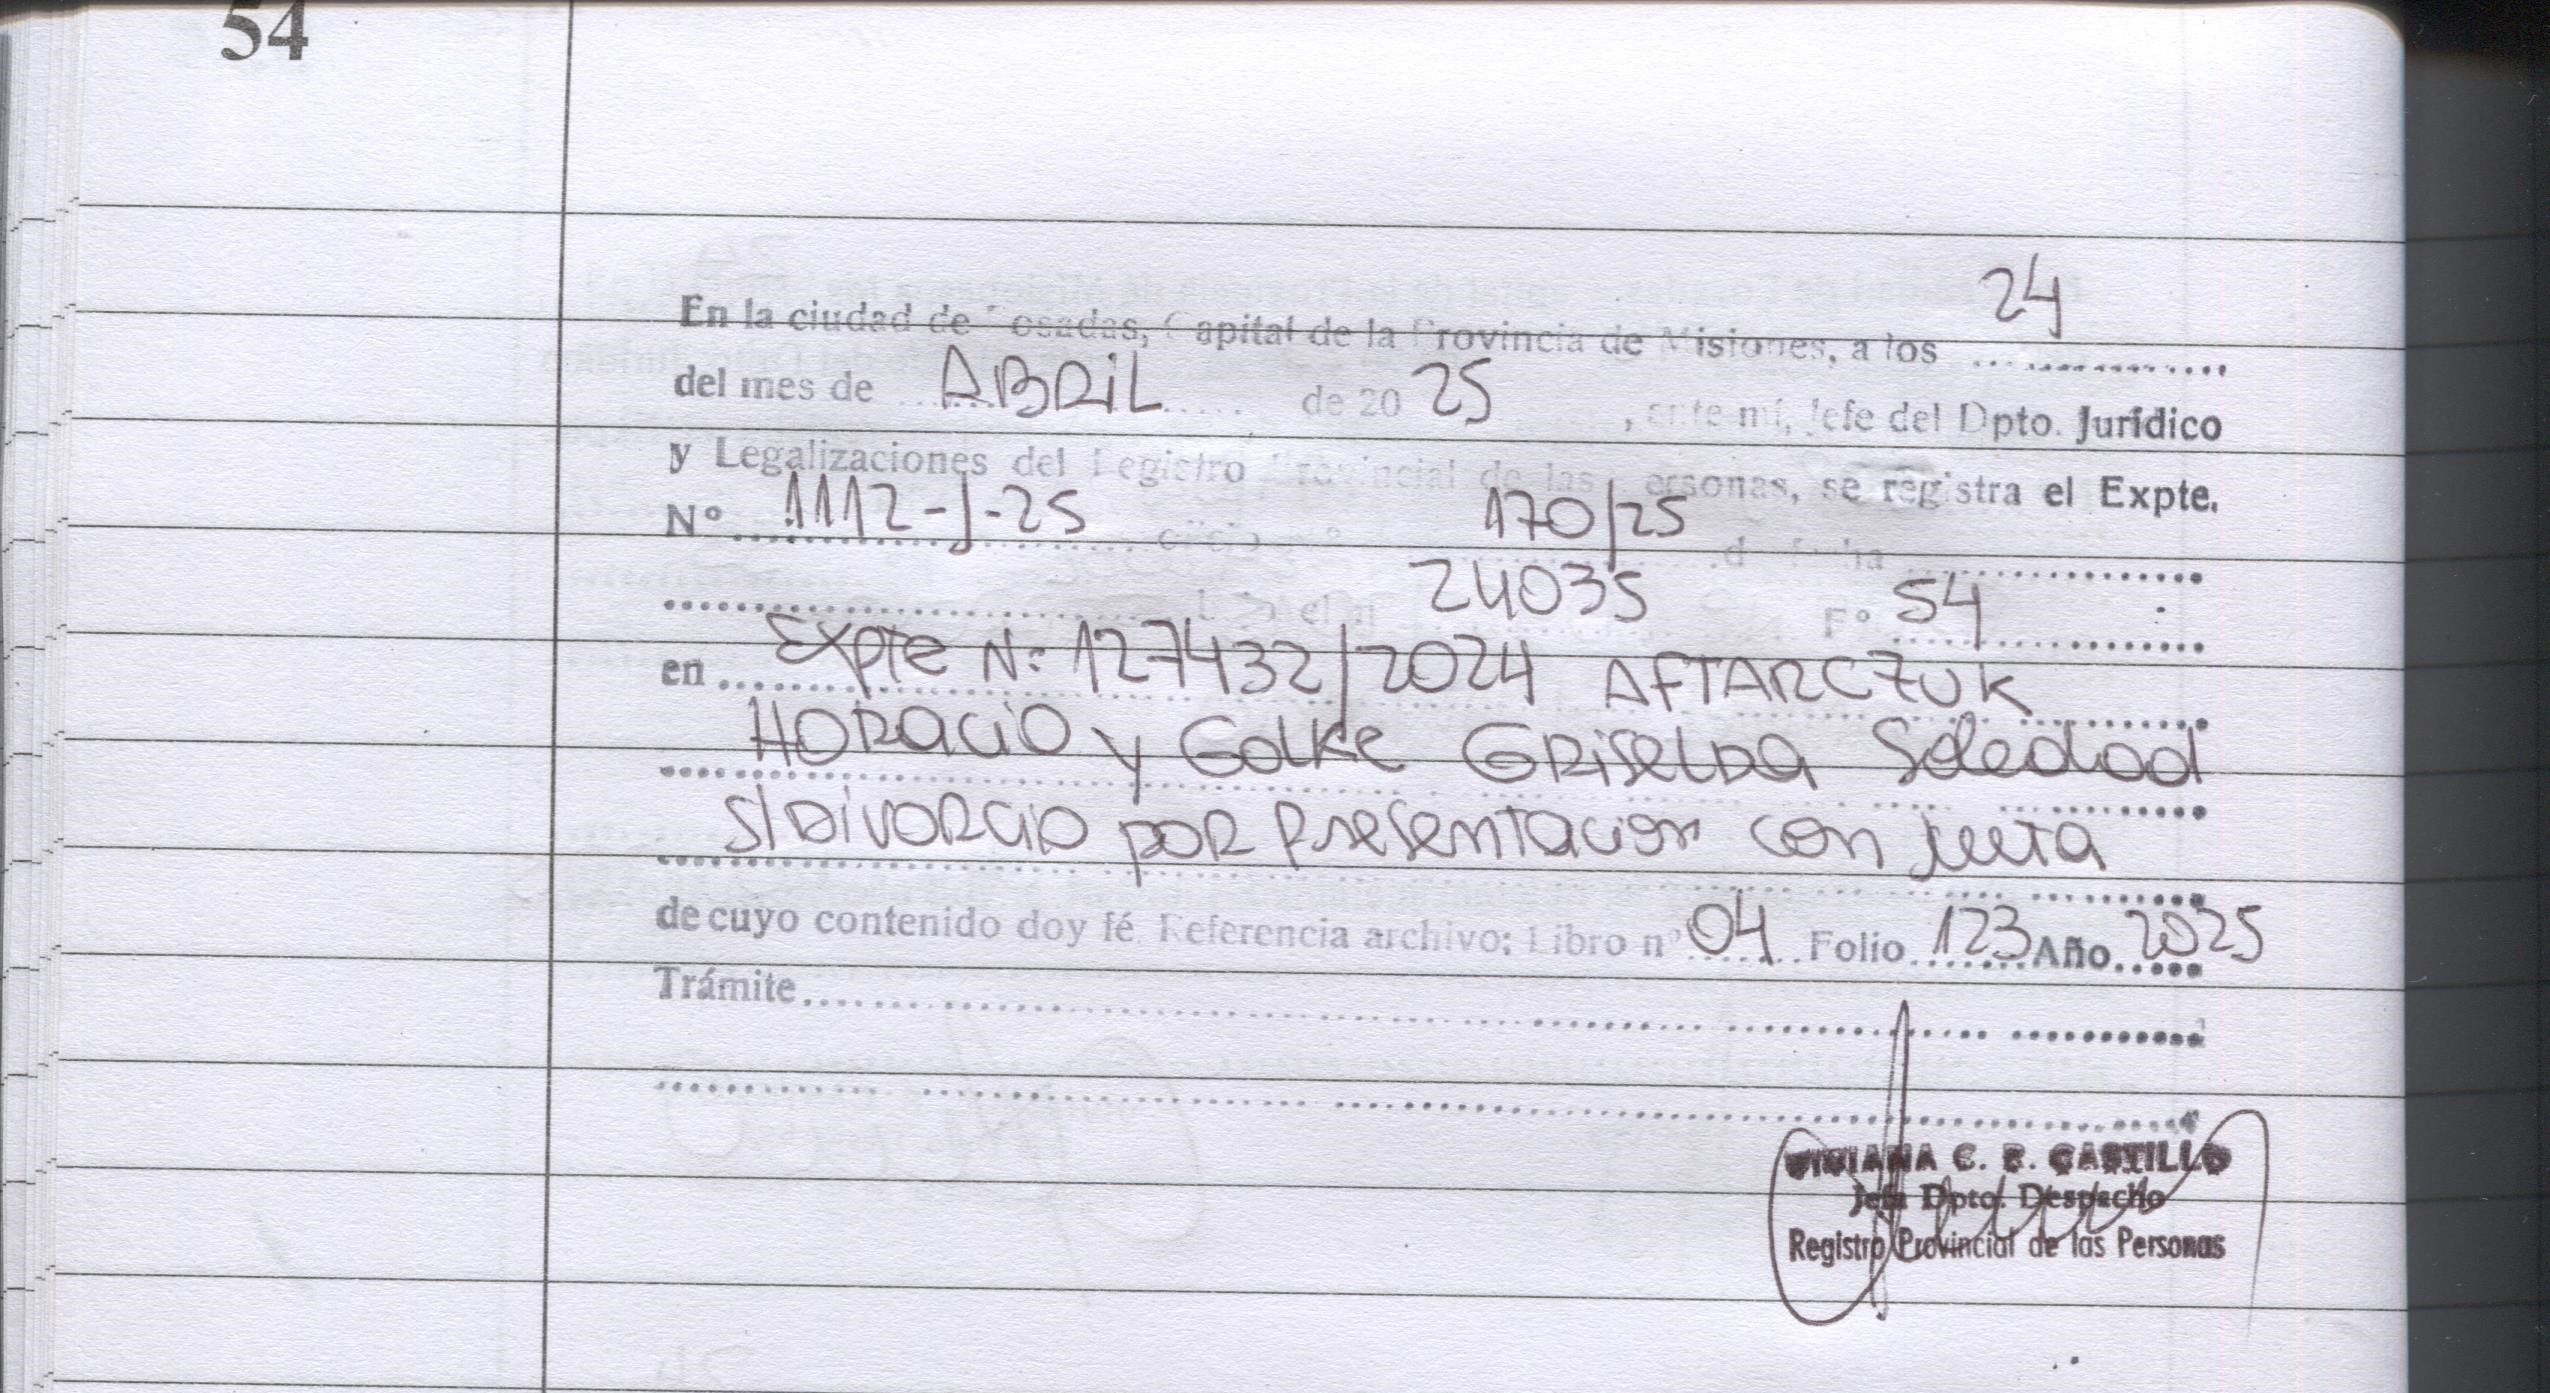 54
En la ciudad de Posadas, Capital de la Provincia de Misiones, a los 24
del mes de ABRIL de 20 25, ante mí, Jefe del Dpto. Jurídico
y Legalizaciones del Registro Provincial de las Personas, se registra el Expte.
Nº 1112-J-25 oficio nº 170/25 de fecha
24035 Fº 54
en Expte N: 127432/2024 AFTARCZUK
HORACIO y Golke GRISELDA Soledad
S/DIVORCIO POR PRESENTACION con junta
de cuyo contenido doy fé. Referencia archivo; Libro nº 04 Folio 123 Año 2025
Trámite
VIVIANA C. B. CASTILLO
Jefa Dpto. Despacho
Registro Provincial de las Personas